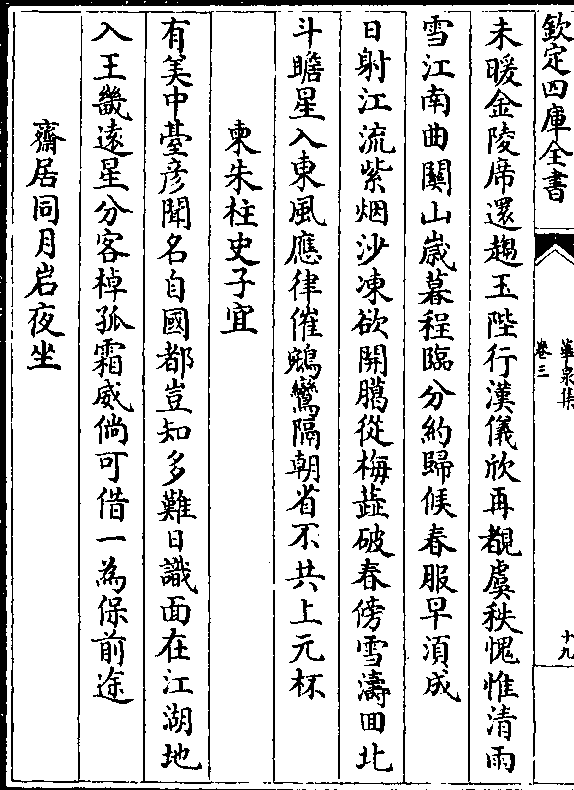 欽定四庫全書
華泉集
卷三
十九
未暖金陵席還趨玉陛行漢儀欣再覩虞秩愧惟清雨
雪江南曲關山歲暮程臨分約歸候春服早湏成
日射江流紫烟沙凍欲開臈從梅蘂破春傍雪濤回北
斗瞻星入東風應律催鵷鸞隔朝省不共上元杯
柬朱柱史子宜
有美中臺彦聞名自國都豈知多難日識面在江湖地
入王畿遠星分客棹孤霜威倘可借一為保前途
齋居同月岩夜坐